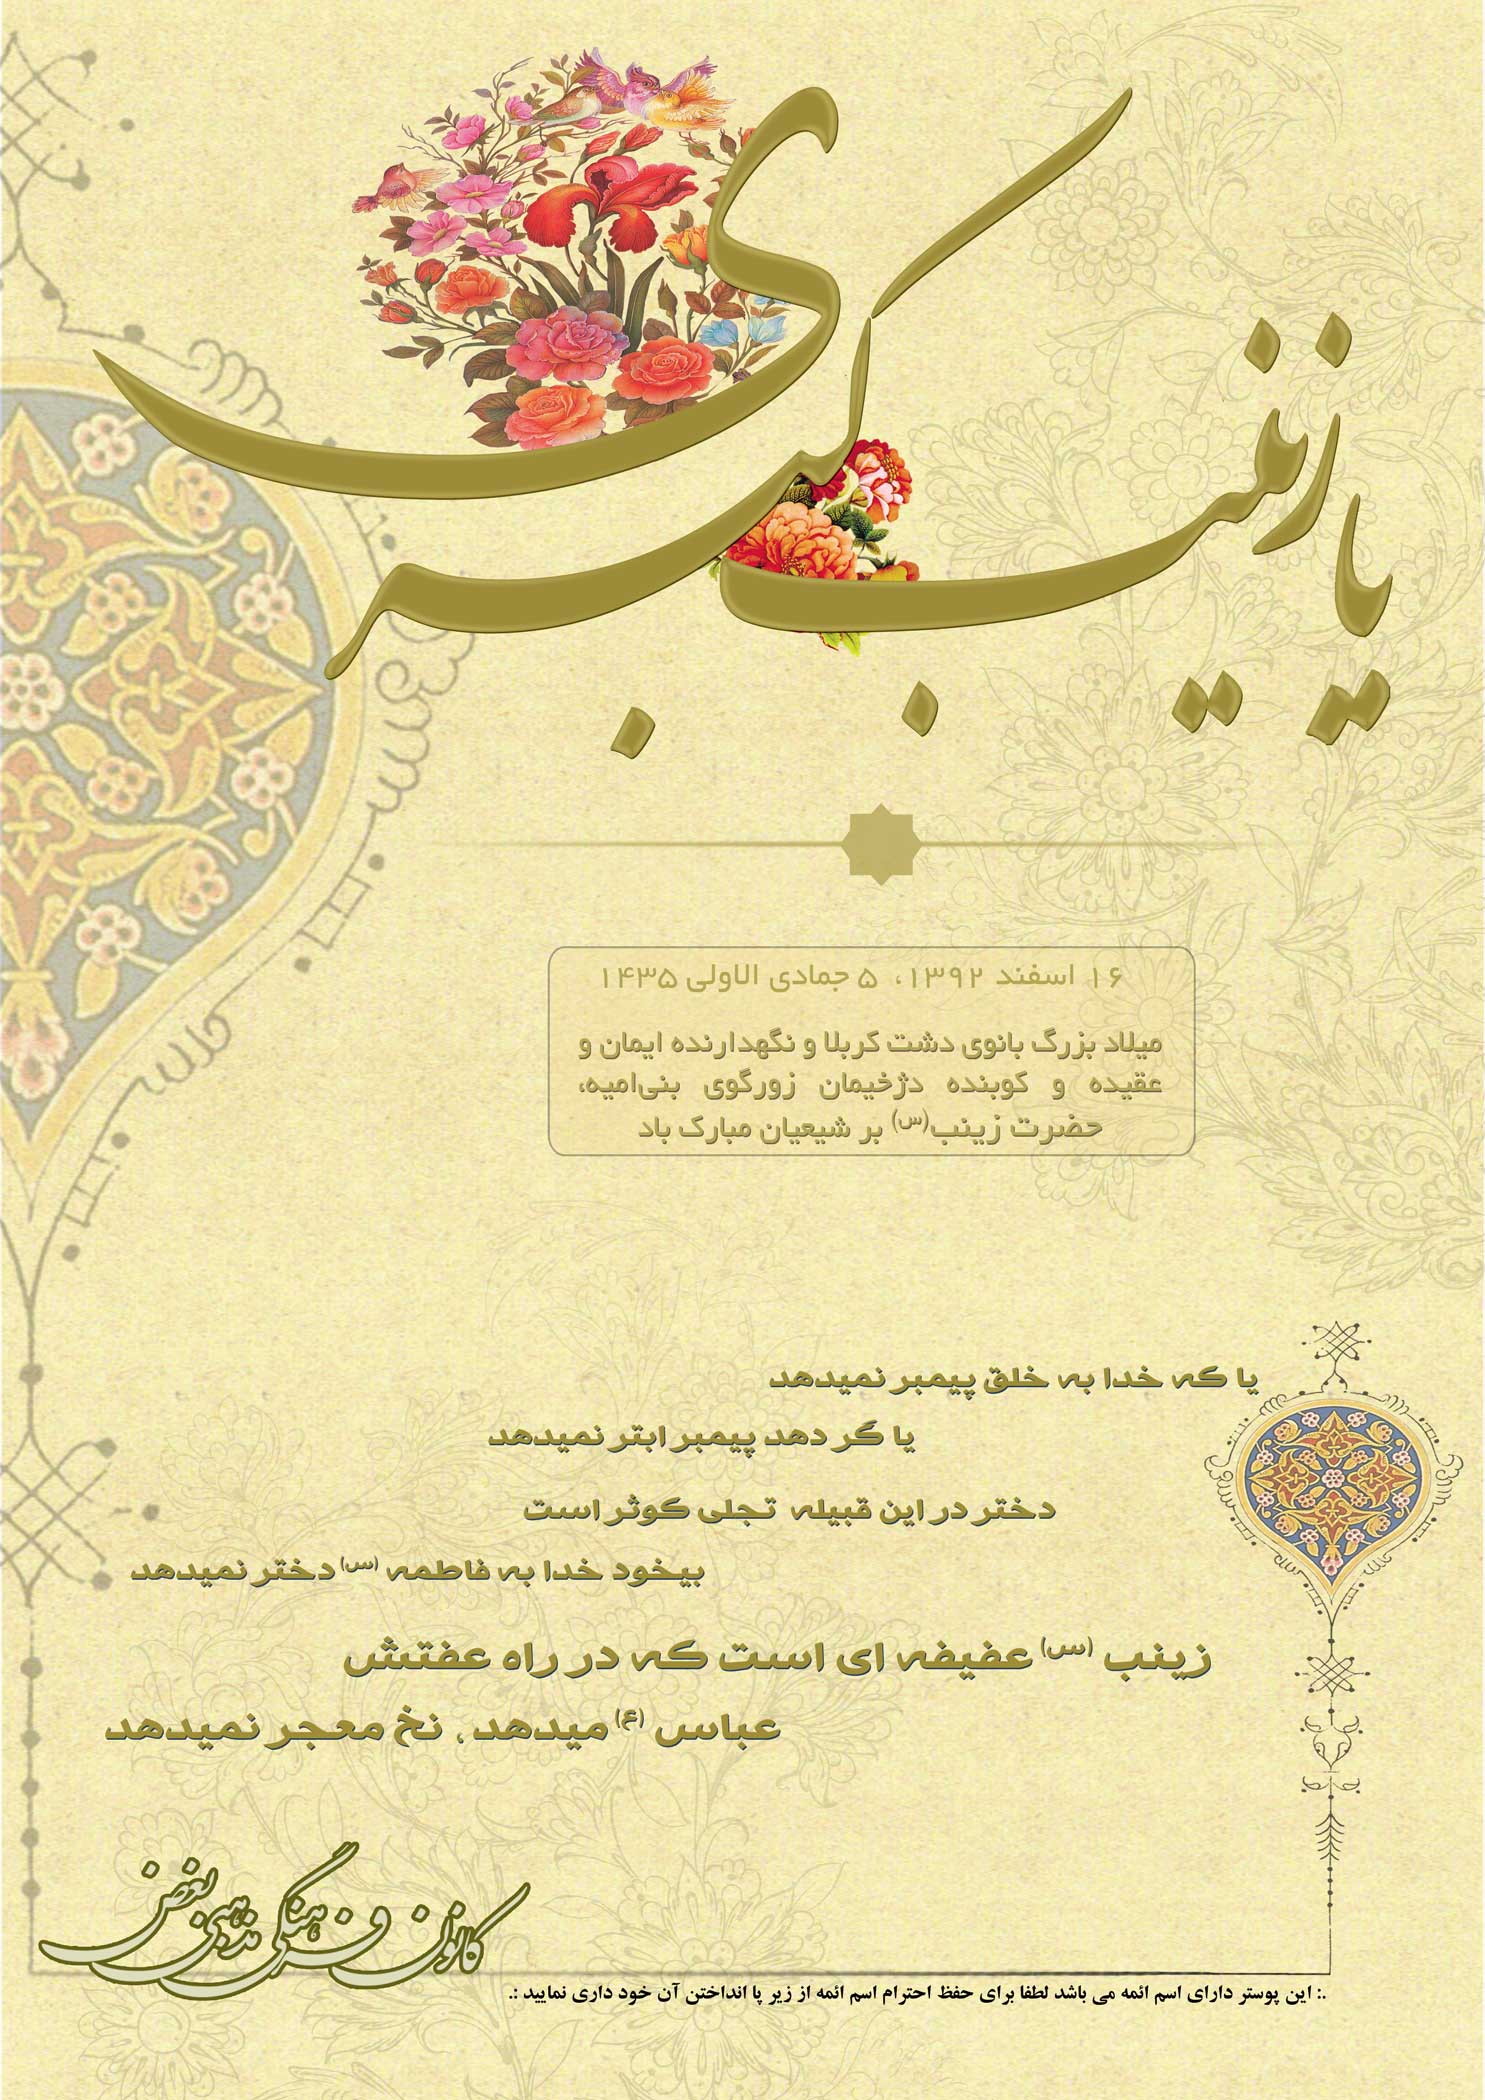 یا زینب کبری
۱۶ اسفند ۱۳۹۲، ۵ جمادی الاولی ۱۴۳۵
میلاد بزرگ بانوی دشت کربلا و نگهدارنده ایمان و
عقیده و کوبنده دژخیمان زورگوی بنی‌امیه،
حضرت زینب(س) بر شیعیان مبارک باد
یا که خدا به خلق پیمبر نمیدهد
یا گر دهد پیمبر ابتر نمیدهد
دختر در این قبیله تجلی کوثر است
بیخود خدا به فاطمه (س) دختر نمیدهد
زینب (س) عفیفه ای است که در راه عفتش
عباس (ع) میدهد، نخ معجر نمیدهد
کانون فرهنگی مذهبی بغض
.: این پوستر دارای اسم ائمه می باشد لطفا برای حفظ احترام اسم ائمه از زیر پا انداختن آن خود داری نمایید :.